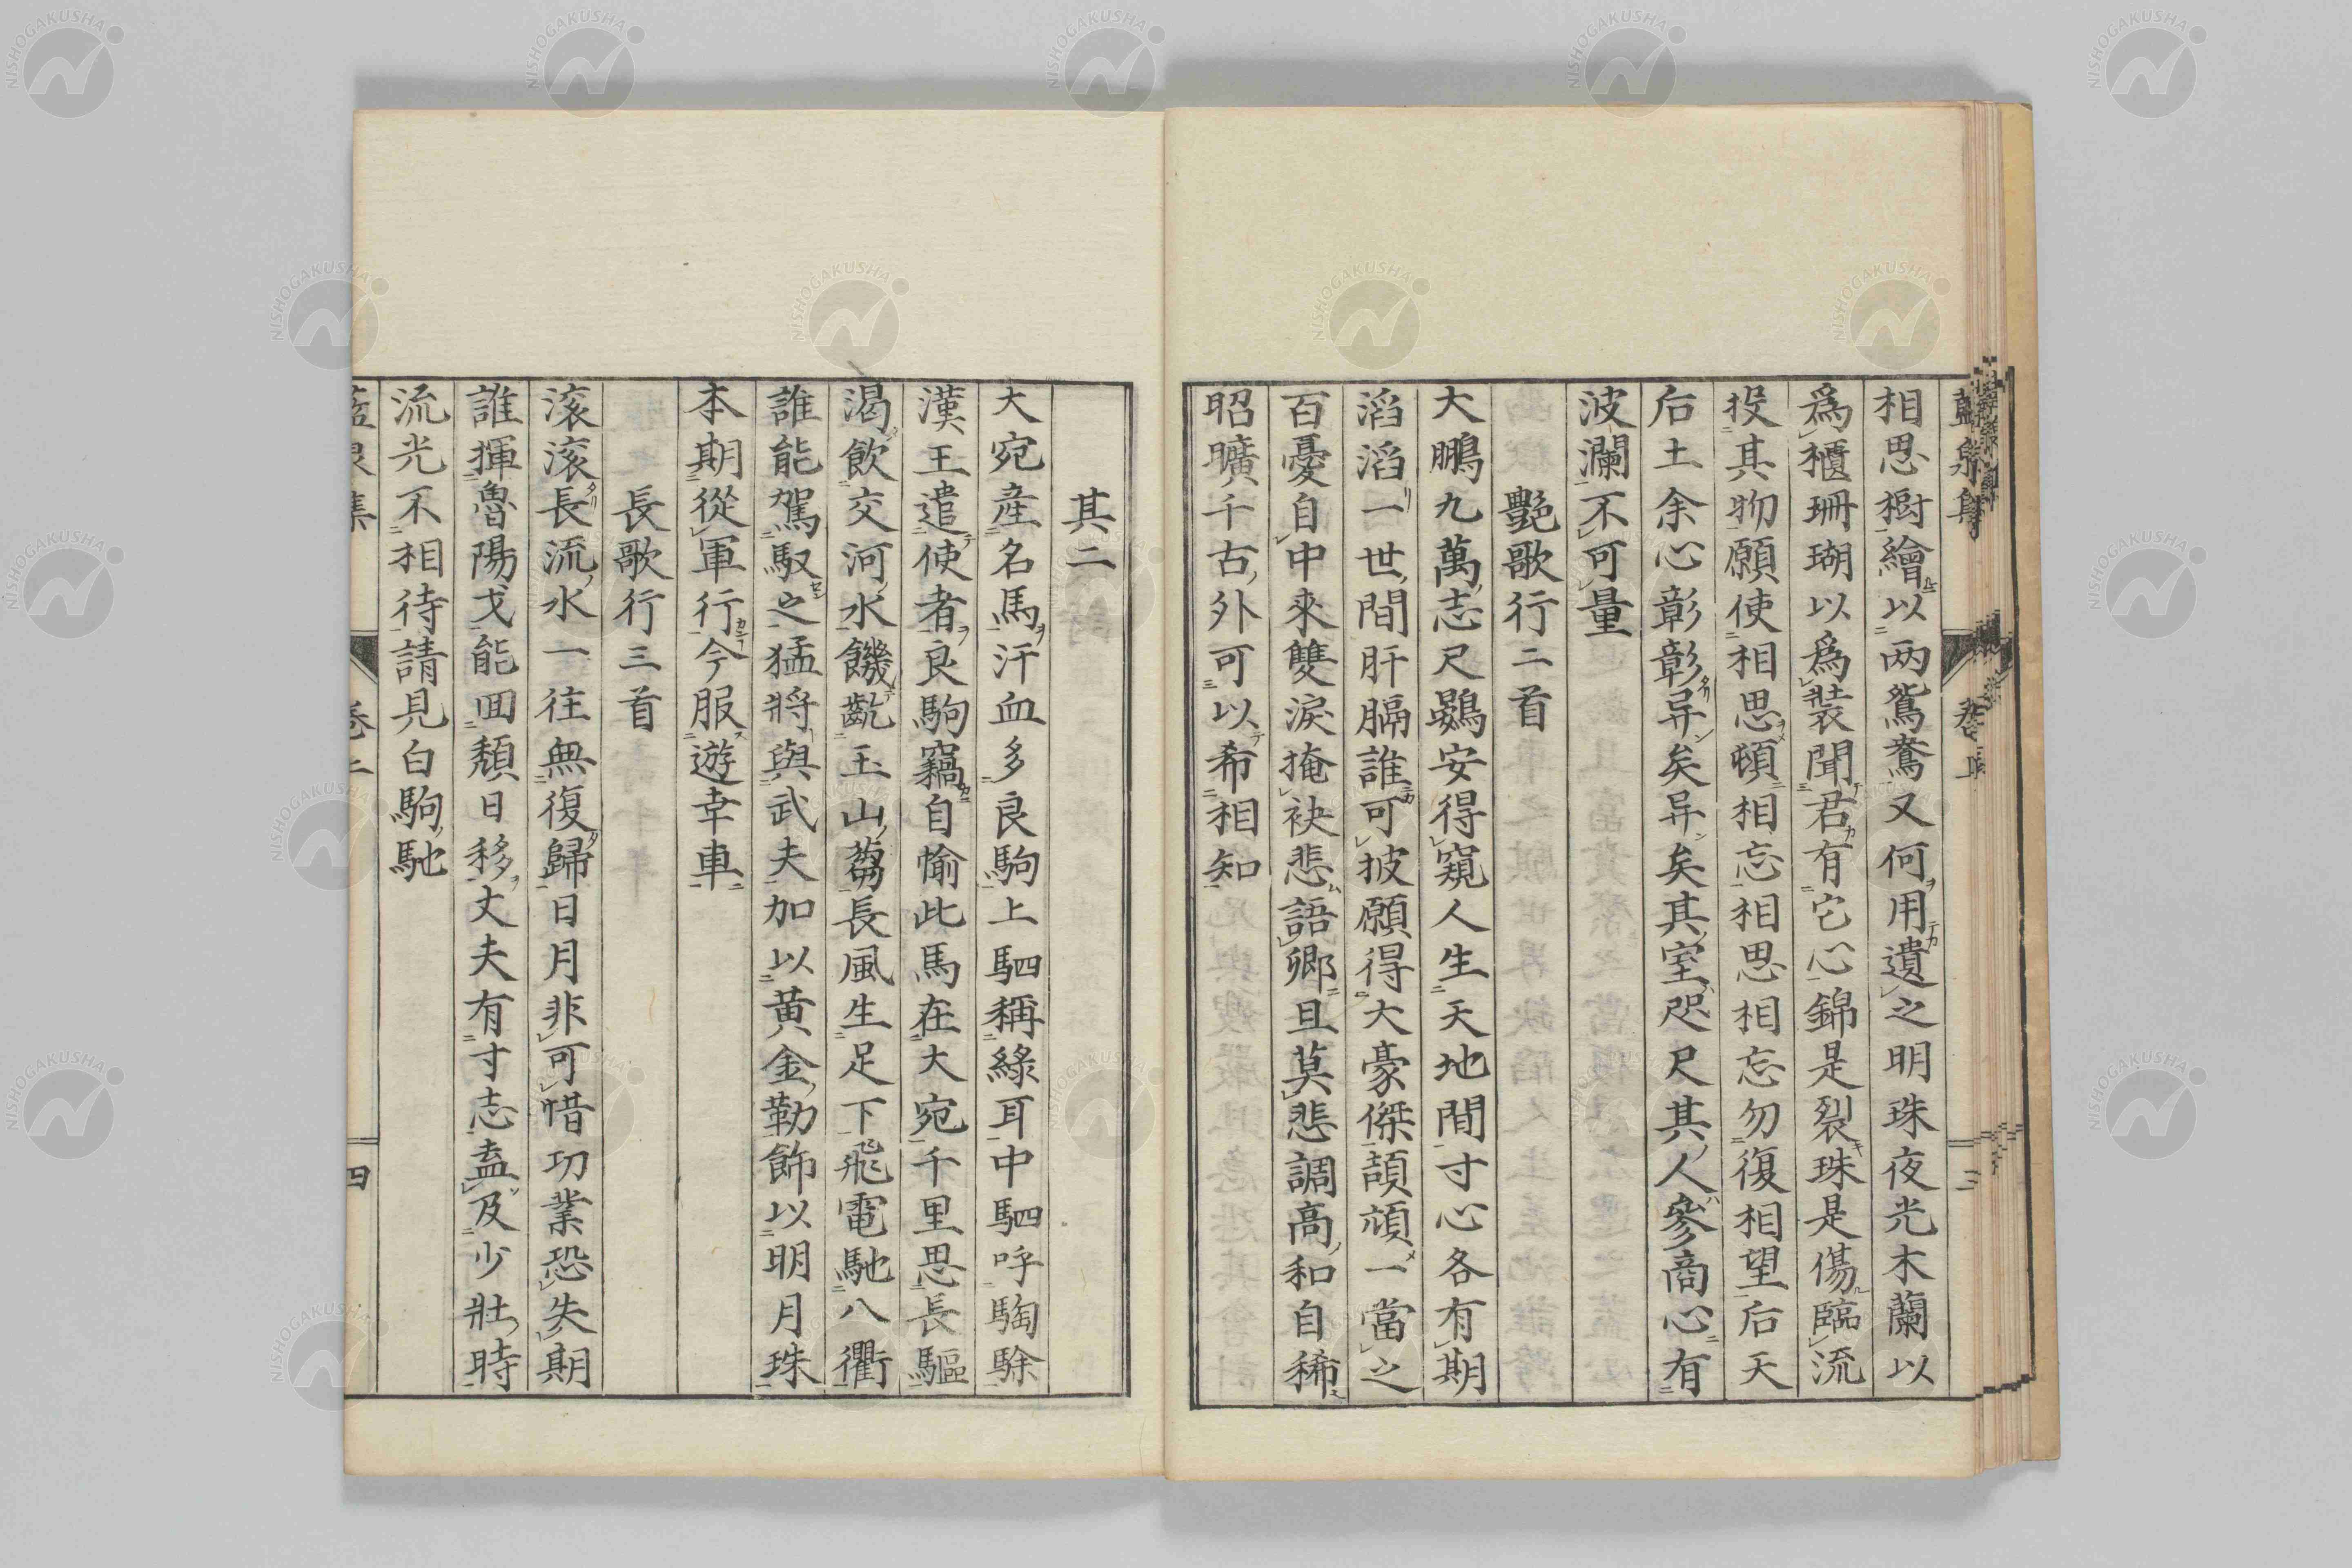 相思樹繪以兩鴛鴦又何用遺之明珠夜光木蘭以
爲櫃珊瑚以爲裝聞君有它心錦是裂珠是傷臨流
投其物願使相思頓相忘相思相忘勿復相望后天
后土余心彰彰异矣异矣其室咫尺其人參商心有
波瀾不可量
艷歌行二首
大鵬九萬志尺鷃安得窺人生天地間寸心各有期
滔滔一世間肝膈誰可披願得大豪傑頡頏一當之
百憂自中來雙淚掩袂悲語卿且莫悲調高和自稀
昭曠千古外可以希相知
其二
大宛産名馬汗血多良駒上駟稱綠耳中駟呼騊駼
漢王遣使者良駒竊自愉此馬在大宛千里思長驅
渴飲交河水饑齕玉山蒭長風生足下飛電馳八衢
誰能駕馭之猛將與武夫加以黃金勒飾以明月珠
本期從軍行今服遊幸車
長歌行三首
滚滚長流水一往無復歸日月非可惜功業恐失期
誰揮魯陽戈能回頹日移丈夫有寸志盍及少壯時
流光不相待請見白駒馳
藍泉集
卷上
四